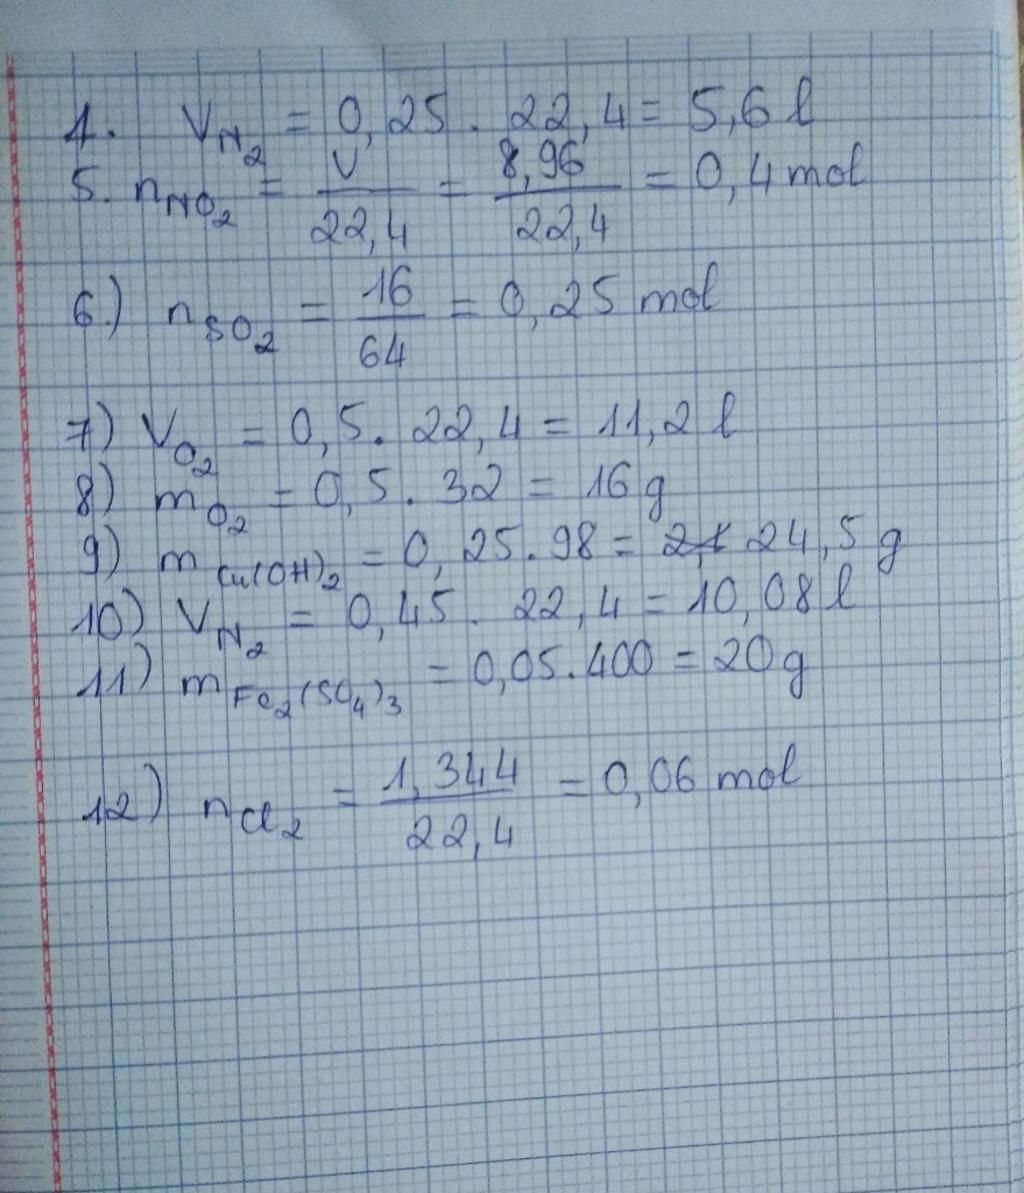 1. V_N₂ = 0,25 . 22,4 = 5,6 l
5. n_NO₂ = V/22,4 = 8,96/22,4 = 0,4 mol
6.) n_SO₂ = 16/64 = 0,25 mol
7) V_O₂ = 0,5 . 22,4 = 11,2 l
8) m_O₂ = 0,5 . 32 = 16 g
9) m_Cu(OH)₂ = 0,25 . 98 = 24,5 g
10) V_N₂ = 0,45 . 22,4 = 10,08 l
11) m_Fe₂(SO₄)₃ = 0,05 . 400 = 20 g
12) n_Cl₂ = 1,344/22,4 = 0,06 mol